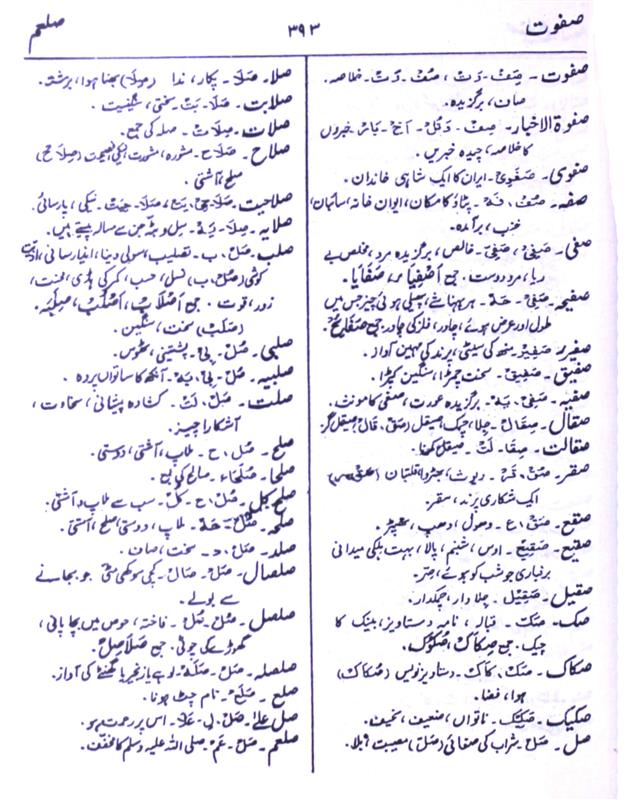 صفوت
۳۹۳
صلعم
صفوت۔ صَفْ۔ وَتْ، صُفْ۔ وَتْ۔ خلاصہ۔
صاف، برگزیدہ۔
صفوۃ الاخیار۔ صِفْ۔ وَتُلْ۔ اَخْ۔ یَارْ۔ خبروں
کا خلاصہ، چیدہ خبریں۔
صفوی۔ صَفَوِیْ۔ ایران کا ایک شاہی خاندان۔
صفہ۔ صُفْ، فَہْ۔ پٹاؤ کا مکان، ایوان خانہ، سائبان،
غرب، برآمدہ۔
صفی۔ صَفِیْ، صَفِیّ۔ خالص، برگزیدہ مرد، مخلص بے
ریا، مرد دوست۔ جمع اَصْفِیَاء، صَفَایَا۔
صفیحہ۔ صَفِیْ۔ حَہْ۔ ہر پہنا شے، پھیلی ہوئی چیز جس میں
طول اور عرض ہوئے، چادر، فلز کی چادر، جمع صَفَائِحْ۔
صفیر۔ صَفِیْرْ۔ منھ کی سیٹی، پرند کی مہین آواز۔
صفیق۔ صَفِیْق۔ سخت چمڑا، سنگین کپڑا۔
صفیہ۔ صَفِیْ، یَہْ۔ برگزیدہ عورت، صفی کا مونث۔
صقال۔ صِقَالْ۔ جِلا، چمک، صیقل (صَقْ، قَالْ) صیقل گر۔
صقالت۔ صِقَا۔ لَتْ۔ صیقل کرنا۔
صقر۔ صَقْ، قَرْ۔ دیوث، بھڑوا، قلتبان
ایک شکاری پرند، سقر۔
صقع۔ صَقْ، ع۔ دھول، دھپ، تھپڑ۔
صقیع۔ صَقِیْعْ۔ اوس، شبنم، پالا، بہت ہلکی میدانی
برفباری جو شب کو ہوئے،
صقیل۔ صَقِیْلْ۔ جِلا دار، چمکدار۔
صک۔ صَکْ۔ قبالہ، نامہ دستاویز، بینک کا
چیک۔ جمع صِکَاکْ، صُکُوْکْ۔
صکاک۔ صَکْ، کَاکْ۔ دستاویز نویس (صُکَاکْ)
ہوا، فضا۔
صکیک۔ صَکِیْکْ۔ ناتواں، ضعیف، نحیف۔
صل۔ صَلْ۔ شراب کی صفائی (صِلْ) مصیبت، بلا۔
صلا۔ صَلَا۔ پکار، ندا (صِلَا) بھنا ہوا، برشتہ۔
صلابت۔ صَلَا۔ بَتْ۔ سختی، سنگینیت۔
صلات۔ صِلَاتْ۔ صلہ کی جمع۔
صلاح۔ صَلَاح۔ مشورہ، مشورت، نیکی، نصیحت (صِلَاح)
صلح، آشتی۔
صلاحیت۔ صَلَا۔ حِیْ۔ یَتْ، صَلَا۔ حِیَتْ۔ نیکی، پارسائی۔
صلایہ۔ صِلَا۔ یَہْ۔ سِل و بٹہ جن سے مسالہ پیستے ہیں۔
صلب۔ صَلْ، ب۔ تصلیب، سولی دینا، ایذا رسانی،
کوشی (صُلْ، ب) نسل، حسب، کمر کی ہڈی، محنت،
زور، قوت۔ جمع اَصْلَابْ، اَصْلُبْ، صِلَبَہ۔
(صَلَبْ) سخت، سنگین۔
صلبی۔ صُلْ۔ بِیْ۔ پشتینی، ٹھوس۔
صلبیہ۔ صُلْ۔ بِیْ۔ یَہْ۔ آنکھ کا ساتواں پردہ۔
صلت۔ صَلْ، لَتْ۔ کشادہ پیشانی، سخاوت،
آشکارا چیز۔
صلح۔ صُلْ، ح۔ ملاپ، آشتی، دوستی۔
صلحا۔ صُلَحَاء۔ صالح کی جمع۔
صلح کل۔ صُلْ، ح۔ کُلْ۔ سب سے ملاپ و آشتی۔
صلحہ۔ صُلْ۔ حَہْ۔ ملاپ، دوستی، صلح، آشتی۔
صلد۔ صَلْ، د۔ سخت، صاف۔
صلصال۔ صَلْ۔ صَالْ۔ کچی سوکھی مٹی جو بجانے
سے بولے۔
صلصل۔ صُلْ، صُلْ۔ فاختہ، حوض میں بچا پانی،
گھوڑے کی چوٹی۔ جمع صَلَاصِلْ۔
صلصلہ۔ صَلْ۔ صَلَہْ۔ لوہے یا زنجیر یا گھنٹے کی آواز۔
صلع۔ صَلَعْ۔ نام چٹ ہونا۔
صل علےٰ۔ صَلْ۔ لِی۔ عَلَا۔ اس پر رحمت ہو۔
صلعم۔ صَلْ۔ عَمْ۔ صلی اللہ علیہ وسلم کا مخفف۔